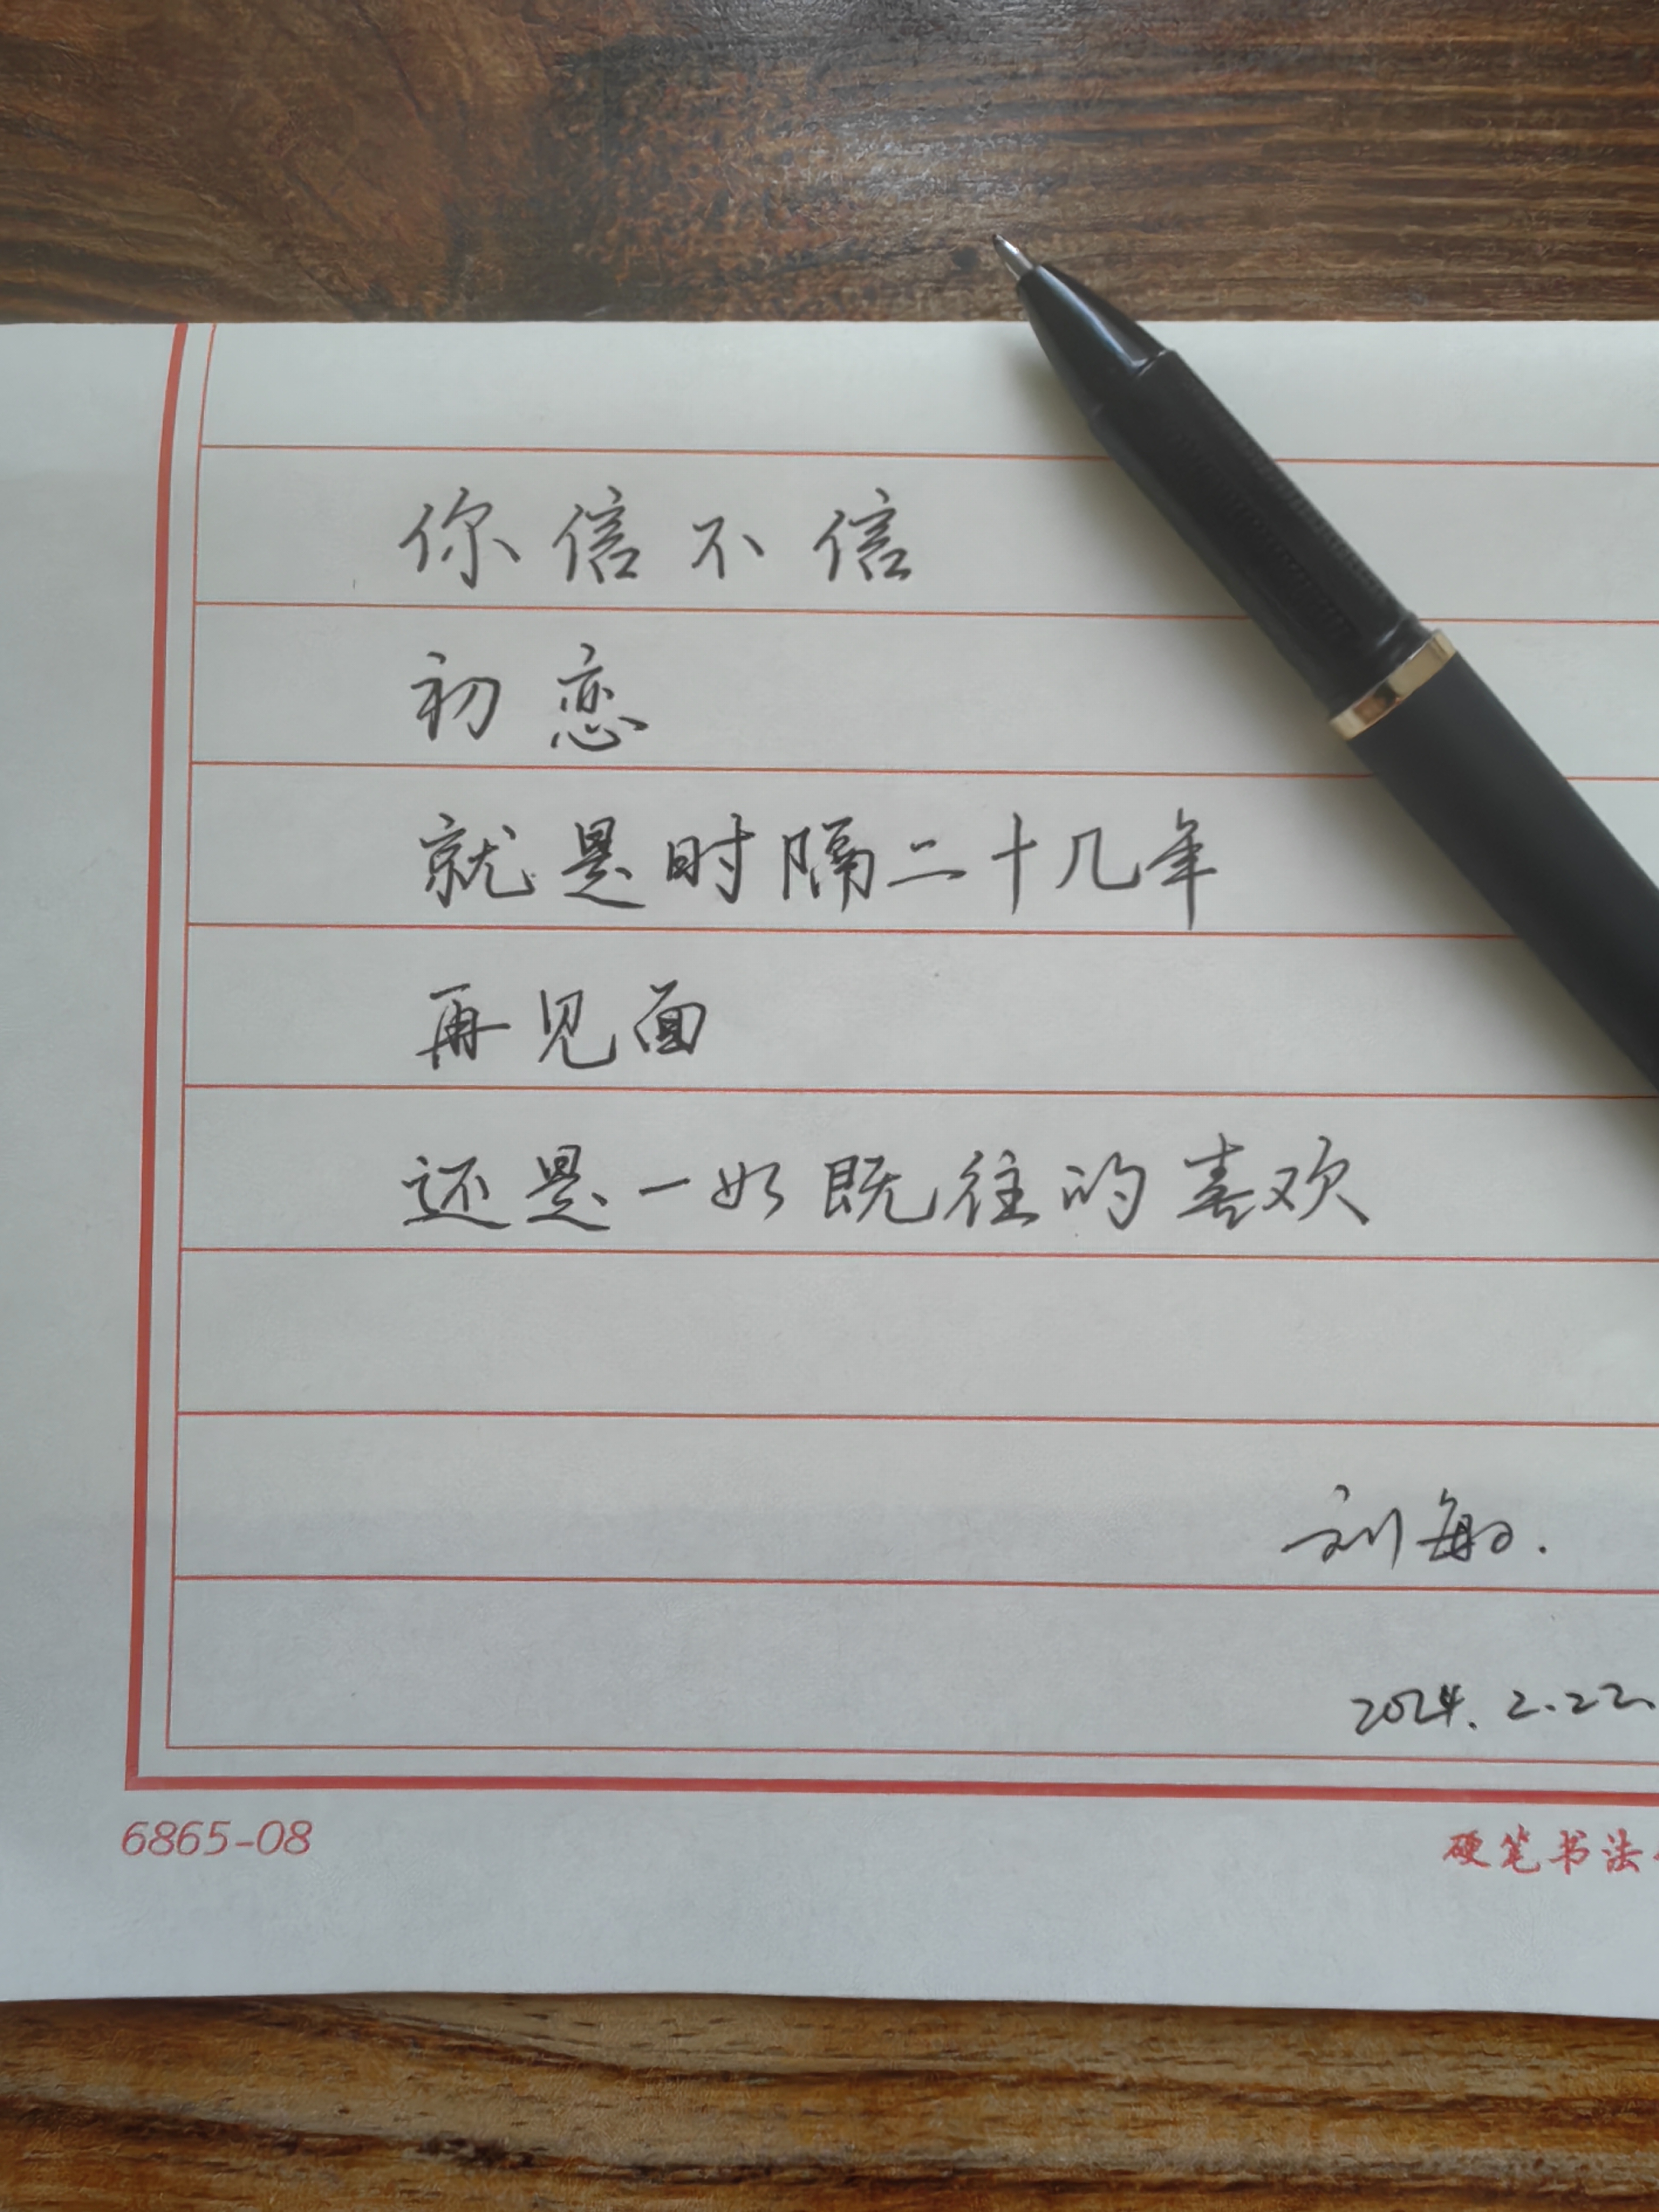 你信不信
初恋
就是时隔二十几年
再见面
还是一如既往的喜欢
刘敏.
2024.2.22.
6865-08
硬笔书法